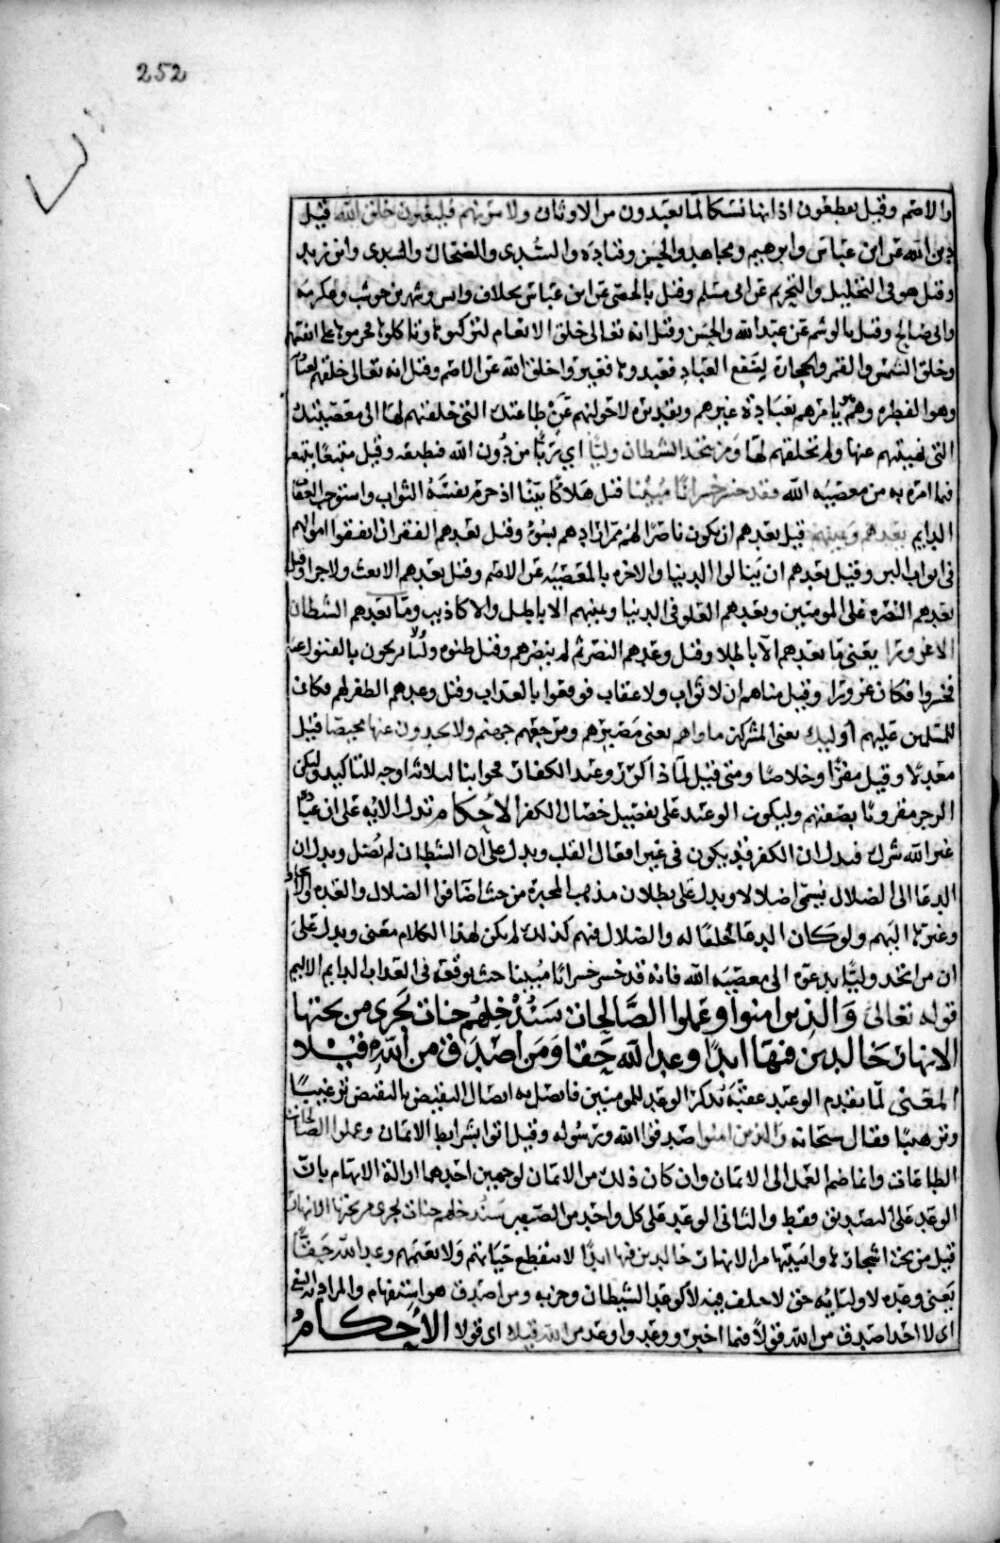 252
والاصم وقيل يقطعون اذانها نسكا لما يعبدون من الاوثان ولامرنهم فليغيرن خلق الله قيل
دين الله عن ابن عباس وابرهيم ومجاهد والحسن وقتادة والسدي والضحاك والسدى وابن زيد
وقيل هو في التحليل والتحريم عن ابي مسلم وقيل بالخصى عن ابن عباس بخلاف وانس وشهر بن حوشب وعكرمه
وابى صالح وقيل بالوشم عن عبد الله والحسن وقيل انه تعالى خلق الانعام لتركبوها وتاكلوها فحرموها على انفسهم
وخلق الشمس والقمر والحجارة لينتفع العباد فعبدوها فغيروا خلق الله عن الاصم وقيل انه تعالى خلقهم
وهو الفطره وهم يامرهم بعبادة غيرهم وتقديره لاحولنهم عن طاعتك التى خلقتهم لها الى معصيتك
التى نهيتهم عنها ولم تخلقهم لها ومن يتخذ الشيطان وليا اي ربا من دون الله فيطيعه وقيل متبعا يتبعه
فيما امره به من معصيه الله فقد خسر خسرانا مبينا قيل هلاكا بينا اذ حرم نفسه الثواب واستوجب العقاب
الدايم يعدهم ويمنيهم قيل يعدهم ان يكون ناصرا لهم ممن ارادهم بسوء وقيل يعدهم الفقر ان انفقوا اموالهم
في ابواب البر وقيل يعدهم ان ينالوا الدنيا والاخره بالمعصيه عن الاصم وقيل يعدهم الا بعث ولا جزا وقيل
يعدهم النصره على المومنين ويعدهم العلو في الدنيا ويمنيهم الاباطيل والاكاذيب وما يعدهم الشيطان
الا غرورا يعنى ما يعدهم الا باطلا وقيل وعدهم النصر ثم لم ينصرهم وقيل ظنوه وليا
فخسروا فكان غرورا وقيل مناهم ان لا ثواب ولا عقاب فوقعوا بالعذاب وقيل وعدهم الظفر لهم فكان
للمسلمين عليهم اوليك يعنى المشركين ماواهم يعنى مصيرهم ومرجعهم جهنم ولا يجدون عنها محيصا قيل
معدلا وقيل مفرا وخلاصا ومتى قيل لماذا كرر وعيد الكفار فجوابنا لثلاثه اوجه للتاكيد وليكن
الزجر مقرونا بصفتهم وليكون الوعيد على تفصيل خصال الكفر الاحكام تدل الايه على ان عبادة
غير الله شرك فيدل ان الكفر قد يكون في غير افعال القلب ويدل على ان الشيطان لم يضل ويدل ان
الدعا الى الضلال يسمى اضلالا ويدل على بطلان مذهب المجبرة من حيث اضافوا الضلال والعده والاتخاذ
وغيرها اليهم ولو كان الدعا خلقا له والضلال فيهم كذلك لم يكن لهذا الكلام معنى ويدل على
ان من اتخذ وليا يدعوه الى معصيه الله فانه قد خسر خسرانا مبينا حيث يوقعه في العذاب الدايم الاليم
قوله تعالى والذين امنوا وعملوا الصالحات سندخلهم جنات تجري من تحتها
الانهار خالدين فيها ابدا وعد الله حقا ومن اصدق من الله قيلا
المعنى لما تقدم الوعيد عقبه بذكر الوعد للمومنين فاتصل به اتصال النقيض بالنقيض ترغيبا
وترهيبا فقال سبحانه والذين امنوا صدقوا الله ورسوله وقيل اتوا بشرايط الايمان وعملوا الصالحات
الطاعات وانما ضم العمل الى الايمان وان كان ذلك من الايمان لوجهين احدهما ازالة الايهام بان
الوعد على التصديق فقط والثانى الوعد على كل واحد من الصنفين سندخلهم جنات تجرى من تحتها الانهار
قيل من تحت اشجارها وابنيتها من الانهار خالدين فيها ابدا لا ينقطع حياتهم ولا نعيمهم وعد الله حقا
يعنى وعده لاوليايه حق لا خلف فيه لا كوعد الشيطان وحزبه ومن اصدق هو استفهام والمراد به النفي
اى لا احد اصدق من الله قولا فيما اخبر ووعد واوعد من الله قيلا اى قولا الاحكام